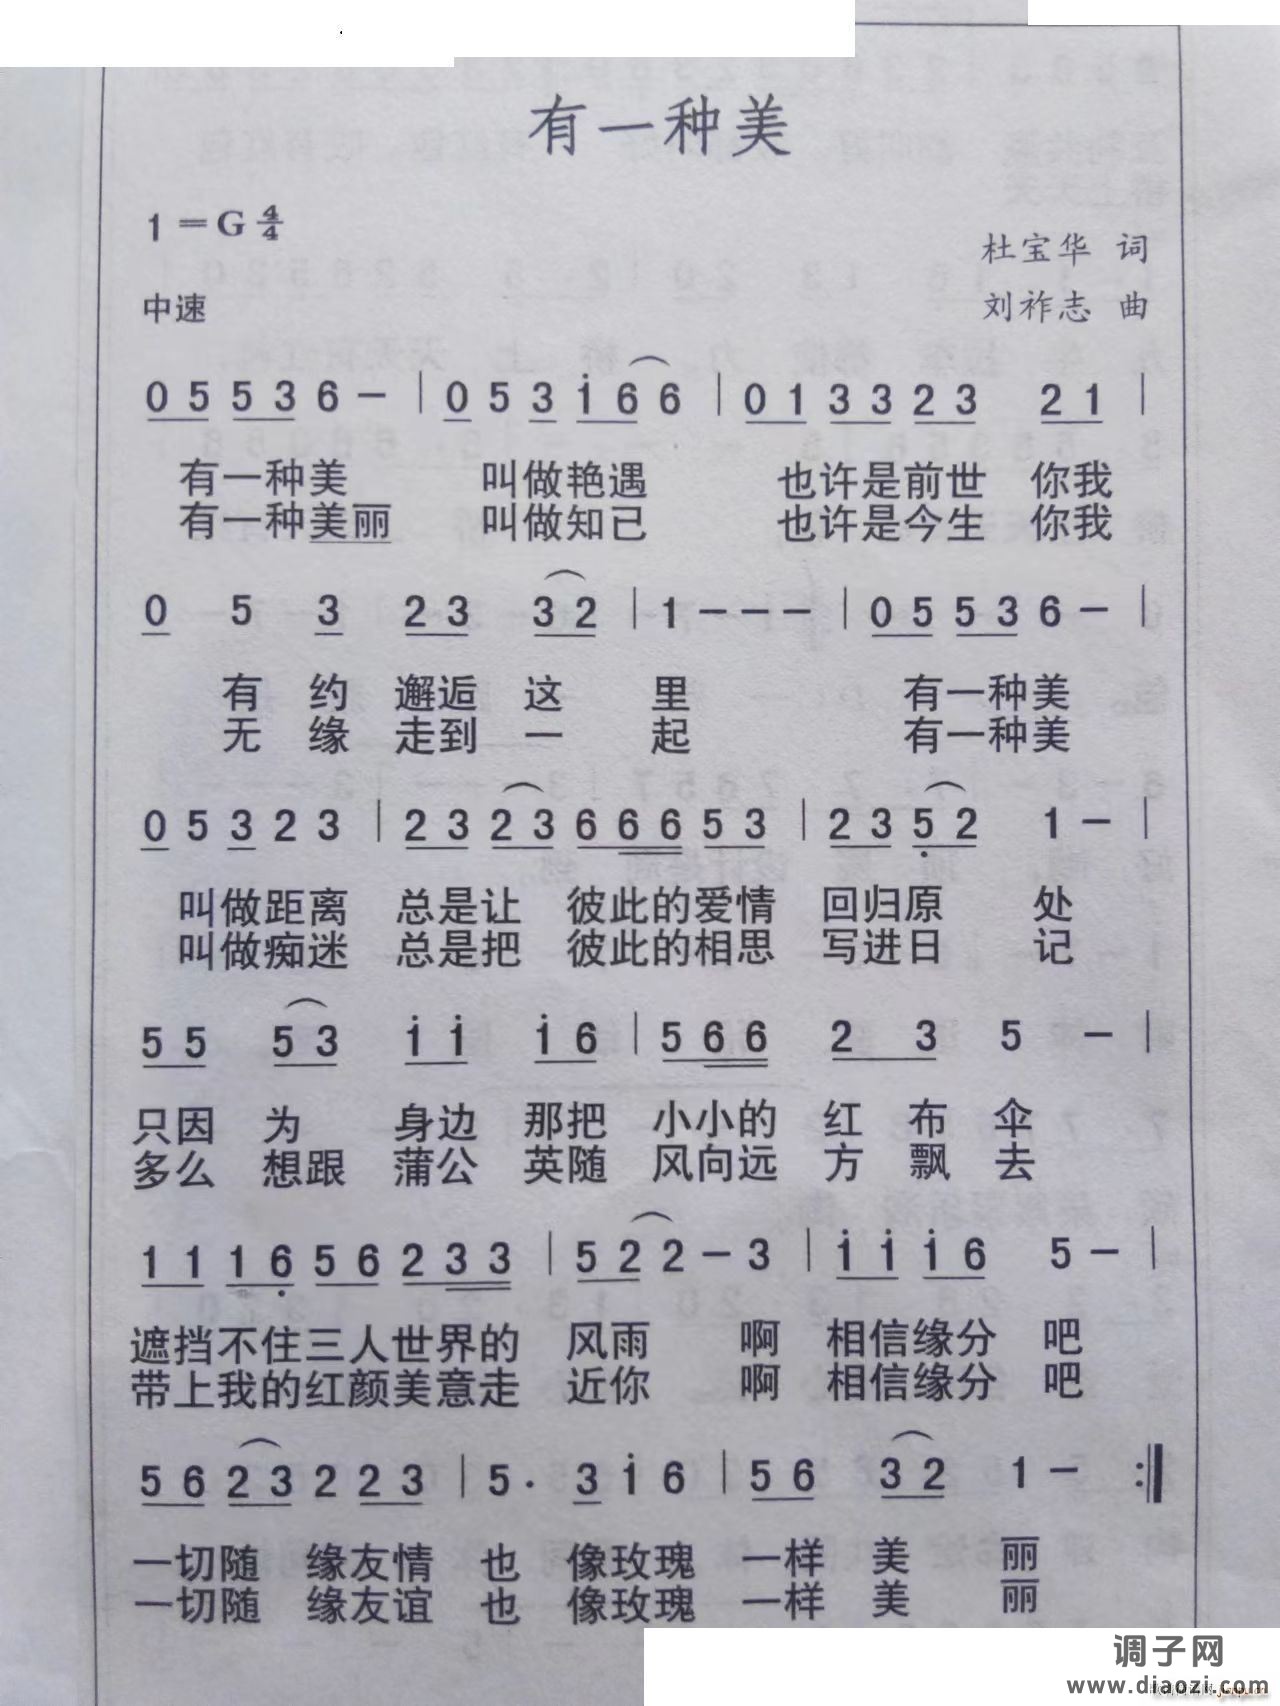 有一种美
1=G 4/4
杜宝华 词
中速
刘祚志 曲
0 5 5 3 6 - | 0 5 3 i 6 6 | 0 1 3 3 2 3 2 1 |
有一种美 叫做艳遇 也许是前世 你我
有一种美丽 叫做知已 也许是今生 你我
0 5 3 2 3 3 2 | 1 - - - | 0 5 5 3 6 - |
有 约 邂逅 这 里 有一种美
无 缘 走到 一 起 有一种美
0 5 3 2 3 | 2 3 2 3 6 6 6 5 3 | 2 3 5 2 1 - |
叫做距离 总是让 彼此的爱情 回归原 处
叫做痴迷 总是把 彼此的相思 写进日 记
5 5 5 3 i i i 6 | 5 6 6 2 3 5 - |
只因 为 身边 那把 小小的 红 布 伞
多么 想跟 蒲公 英随 风向远 方 飘 去
1 1 1 6 5 6 2 3 3 | 5 2 2 - 3 | i i i 6 5 - |
遮挡不住三人世界的 风雨 啊 相信缘分 吧
带上我的红颜美意走 近你 啊 相信缘分 吧
5 6 2 3 2 2 3 | 5 · 3 i 6 | 5 6 3 2 1 - :||
一切随 缘友情 也 像玫瑰 一样 美 丽
一切随 缘友谊 也 像玫瑰 一样 美 丽
调子网
www.diaozi.com